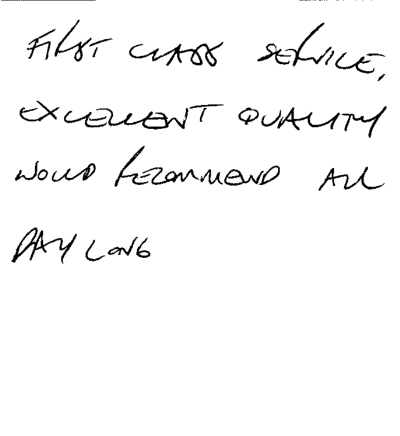 FIRST CLASS SERVICE,
EXCELLENT QUALITY
WOULD RECOMMEND ALL
DAY LONG